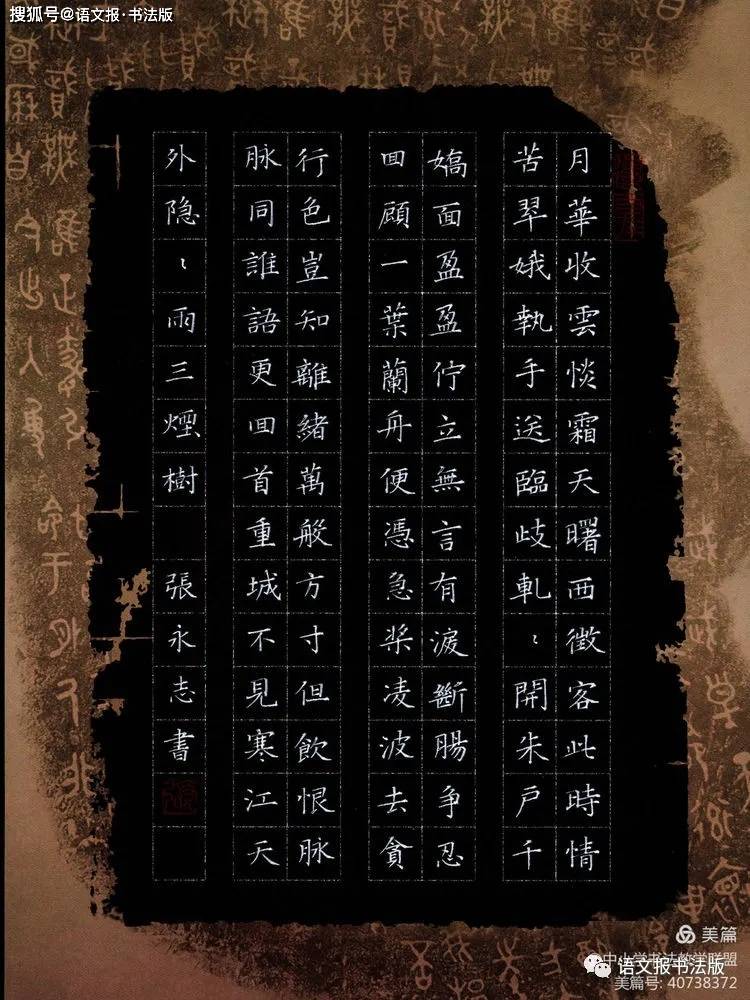 搜狐号@语文报·书法版
月華收雲淡霜天曙西徵客此時情
苦翠娥執手送臨歧軋〻開朱戶千
嬌面盈盈佇立無言有淚斷腸爭忍
回顧一葉蘭舟便憑急槳凌波去貪
行色豈知離緒萬般方寸但飲恨脉
脉同誰語更回首重城不見寒江天
外隐〻雨三煙樹 張永志書
美篇
中小学书法教学联盟
语文报书法版
美篇号: 40738372